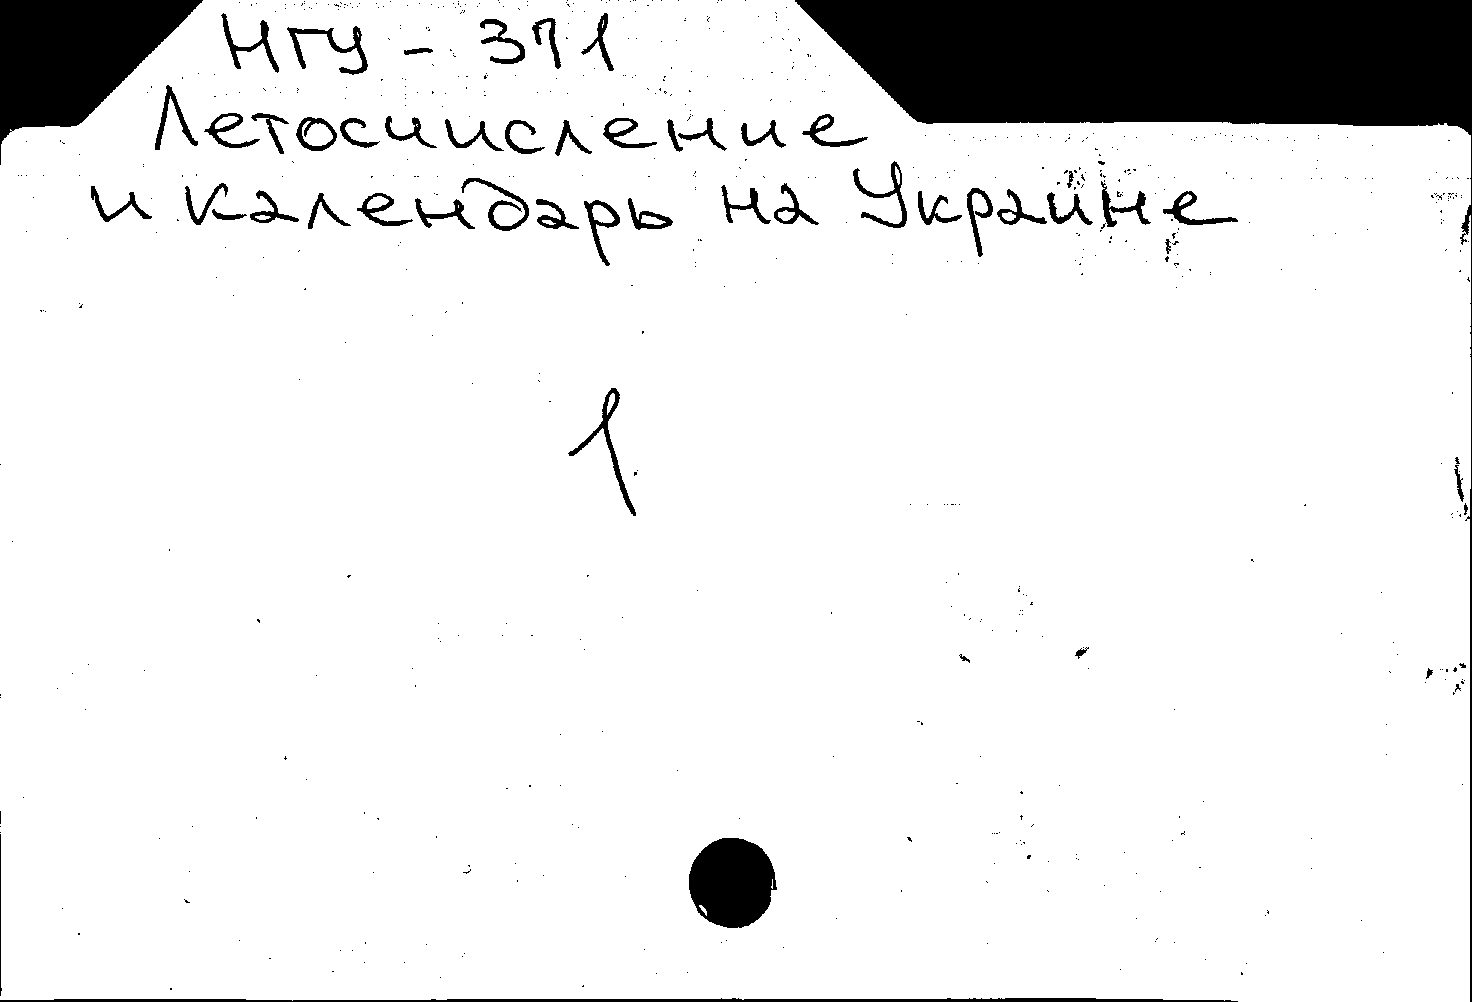 НГУ - 371
Летосчисление
и календарь на Украине
1